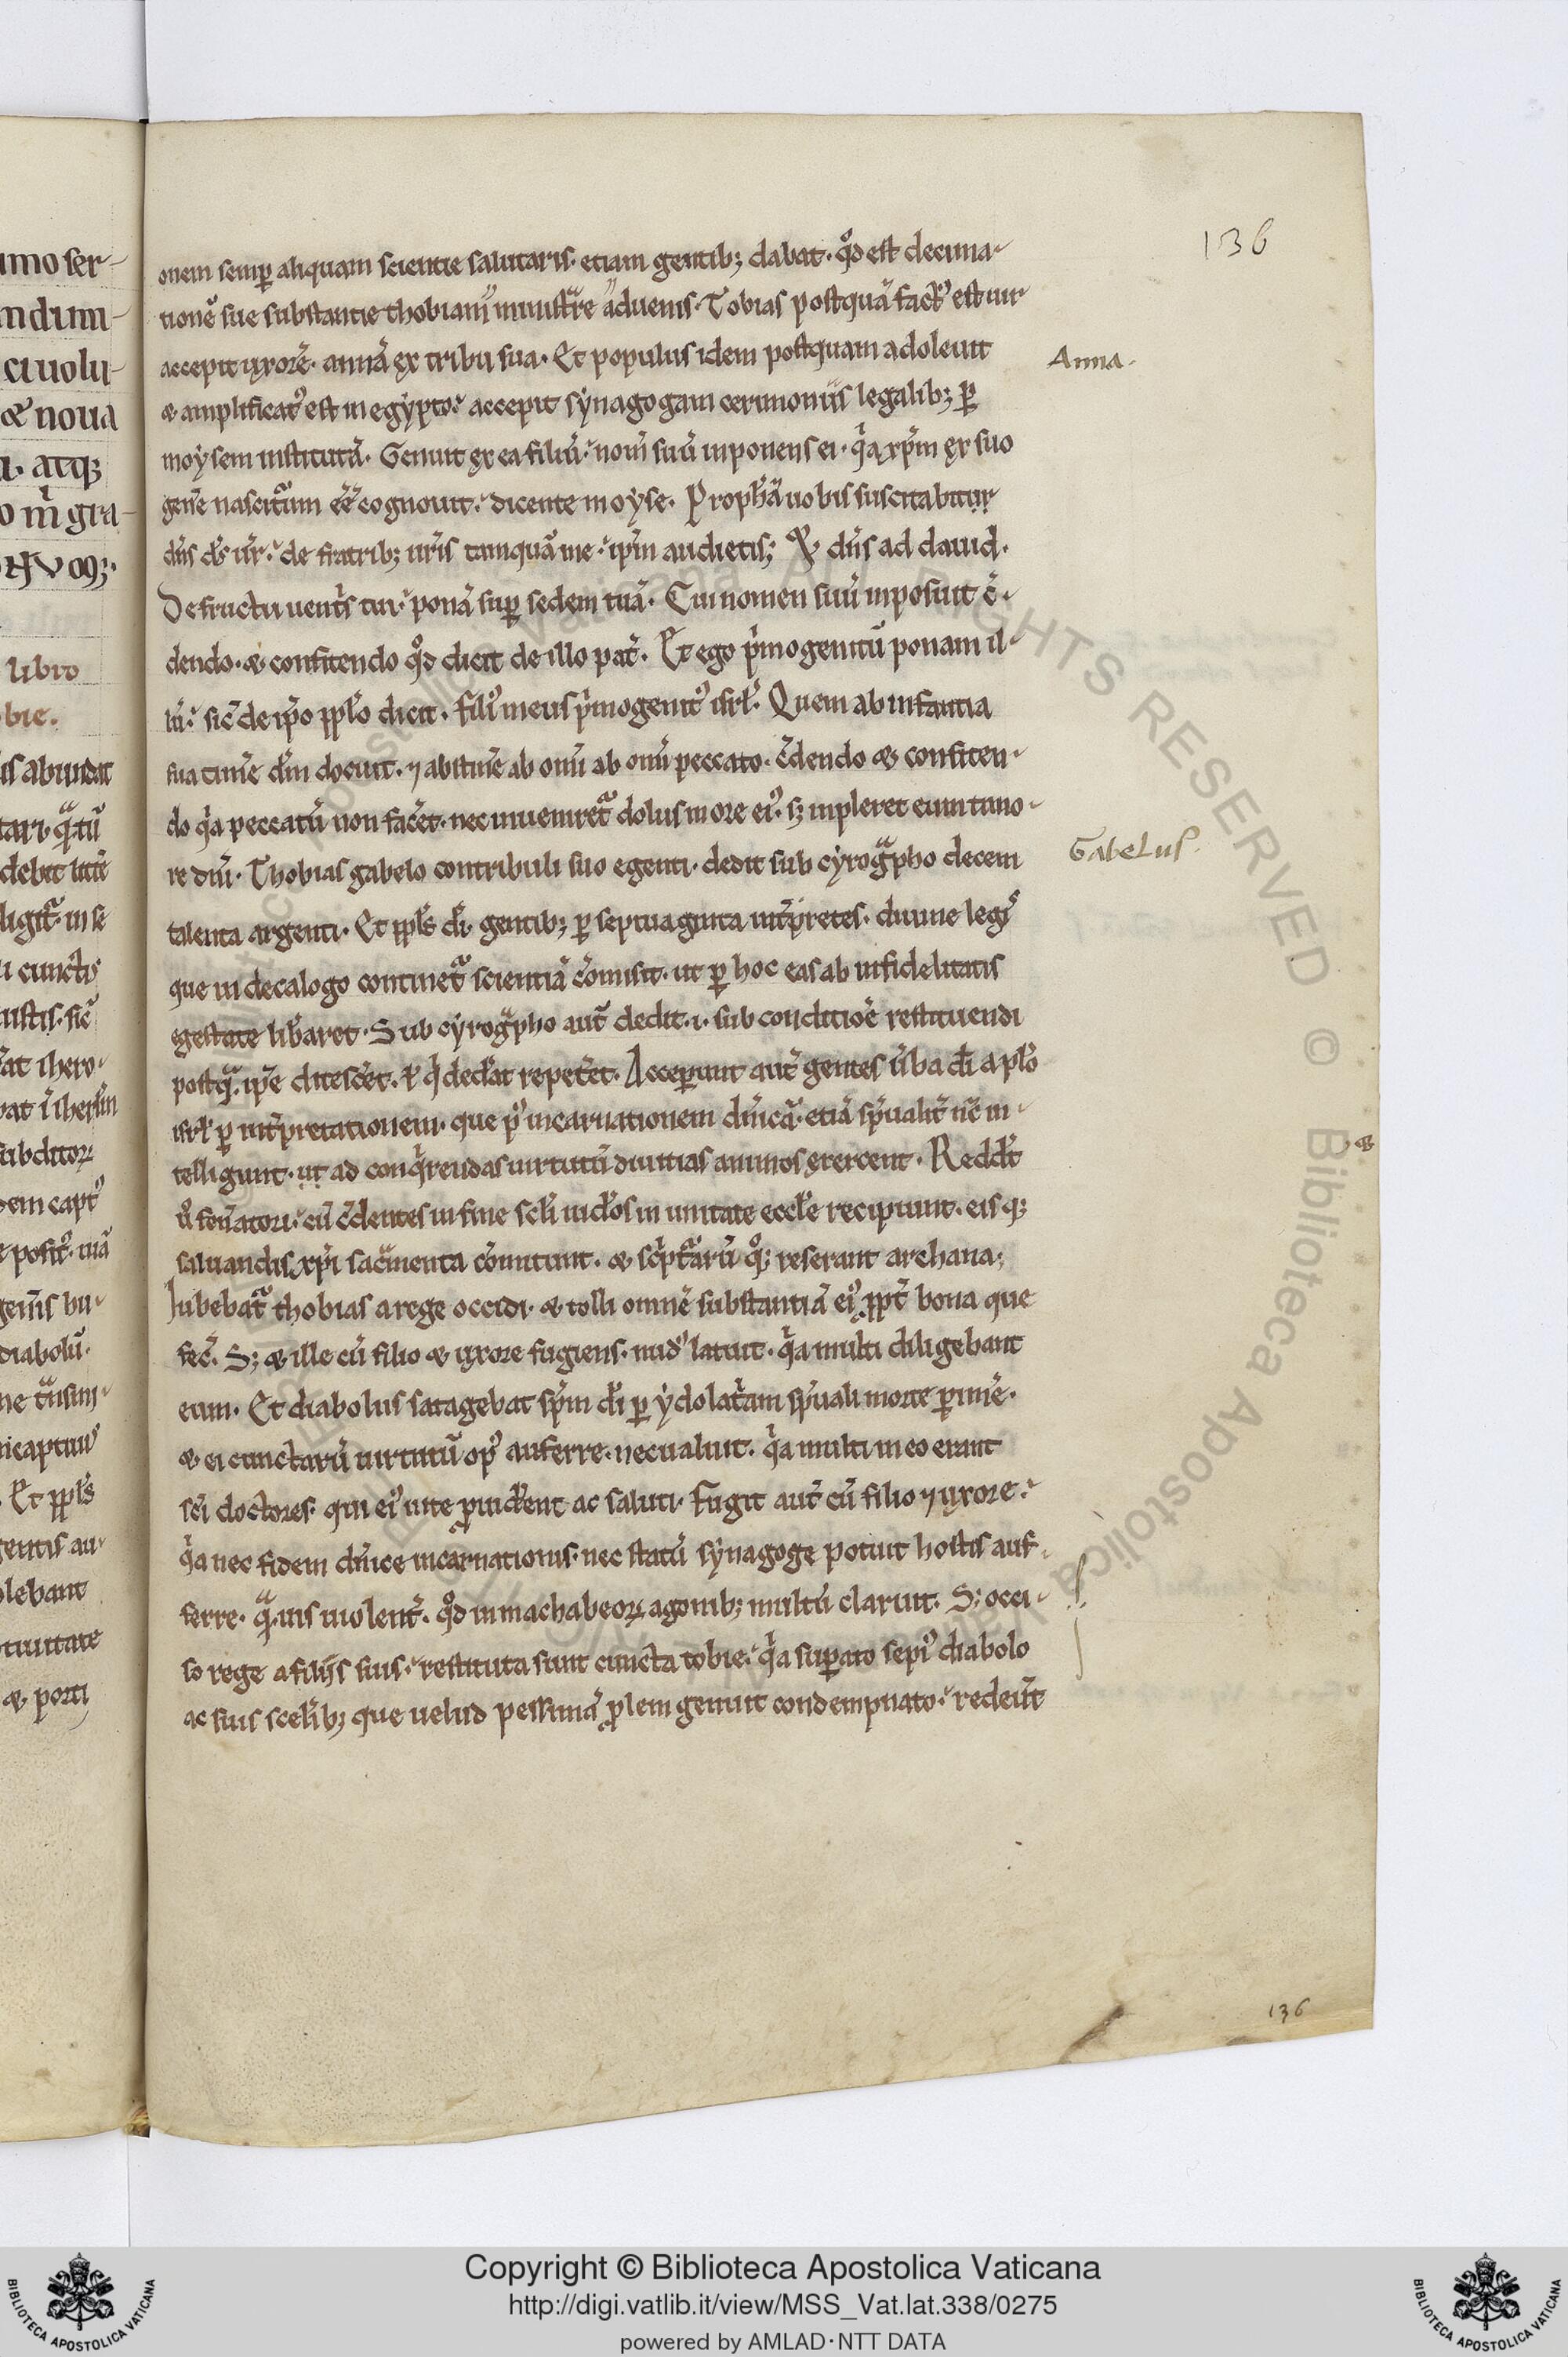 136
onem semꝑ aliquam scientie salutaris. etiam gentib; dabat. qͦd est decima-
tionē sue substantie thobiam ministͣre aduenis. Tobias postquā factꝰ est uir
accepit uxorē. annā ex tribu sua. Et populus idem postquam adoleuit
Anna.
& amplificatꝰ est in egypto. accepit synagogam cerimoniis legalib; ꝑ
moysem institutā. Genuit ex ea filiū. nom̄ suū inponens ei. qͥa xp̄m ex suo
gen̄e nascitͣum eē cognouit. dicente moyse. Prophā uobis suscitabitur
dn̄s ds̄ ur̄. de fratrib; ur̄is tamquā me. ip̄m audietis; & dn̄s ad dauid.
De fructu uentͥs tui. ponā suꝑ sedem tuā. Cui nomen suū inposuit c̄-
dendo. & confitendo qͦd dicit de illo pat̄. Et ego pͥmogenitū ponam il-
lū. sic̄ de ip̄o ppl̄o dicit. filiꝰ meus pͥmogenitꝰ isrl̄. Quem ab infantia
sua tim̄e dm̄ docuit. ⁊ abstin̄e ab om̄i ab om̄i peccato. c̄dendo & confiten-
do qͥa peccatū non fac̄et. nec inueniretͣ dolus in ore eiꝰ. sꝫ inpleret eum timo-
re dn̄i. Thobias gabelo contribuli suo egenti. dedit sub cyrogͣpho decem
Gabelus.
talenta argenti. Et ppl̄s dī. gentib; ꝑ septuaginta int̄pretes. diuine legiꝰ
que in decalogo continetͣ scientiā c̄misit. ut ꝑ hoc eas ab infidelitatis
egestate lib̄aret. Sub cyrogͣpho aut̄ dedit. i. sub conditioē restituendi
postqͣ. ip̄e ditesc̄et. ł qͥ ded̄at repet̄et. Acceꝑunt aut̄ gentes u̅ba dī a pl̄o
isrl̄ ꝑ int̄pretationem. que pꝰ incarnationem dn̄icā. etiā sp̄ualit̄ nc̄ in-
telligunt. ut ad conqͥrendas uirtutū diuitias animos exercent. Redd̄t
u̅ fen̄atori. cū c̄dentes in fine scl̄i iud̄os in unitate eccl̄e recipiunt. eisqꝫ
saluandis xp̄i sac̄menta c̄mittunt. & sc̄ptͣarū qͦ; reserant archana;
Iubebatͣ thobias a rege occidi. & tolli omnē substantiā eiꝰ ꝓpt̄ bona que
fec̄. S; & ille cū filio & uxore fugiens. nudꝰ latuit. qͥa multi diligebant
eum. Et diabolus satagebat sp̄m dī ꝑ ydolat̄am sp̄uali morte ꝑim̄e.
& ei cunctarū uirtutū opꝰ auferre. nec ualuit. qͥa multi in eo erant
sc̄i doctores. qui eiꝰ uite ꝓuid̄ent ac saluti. Fugit aut̄ cū filio ⁊ uxore.
qͥa nec fidem dn̄ice incarnationis. nec statū synagoge potuit hostis auf-
ferre. qͣ.uis uiolent̄. qͦd in machabeoꝝ agonib; multū claruit. S; occi-
so rege a filiis suis. restituta sunt cuncta tobie. qͥa suꝑato sepiꝰ diabolo
ac suis scel̄ib; que uelud pessimā ꝓlem genuit condempnato. redeūt
136
Copyright © Biblioteca Apostolica Vaticana
http://digi.vatlib.it/view/MSS_Vat.lat.338/0275
powered by AMLAD·NTT DATA